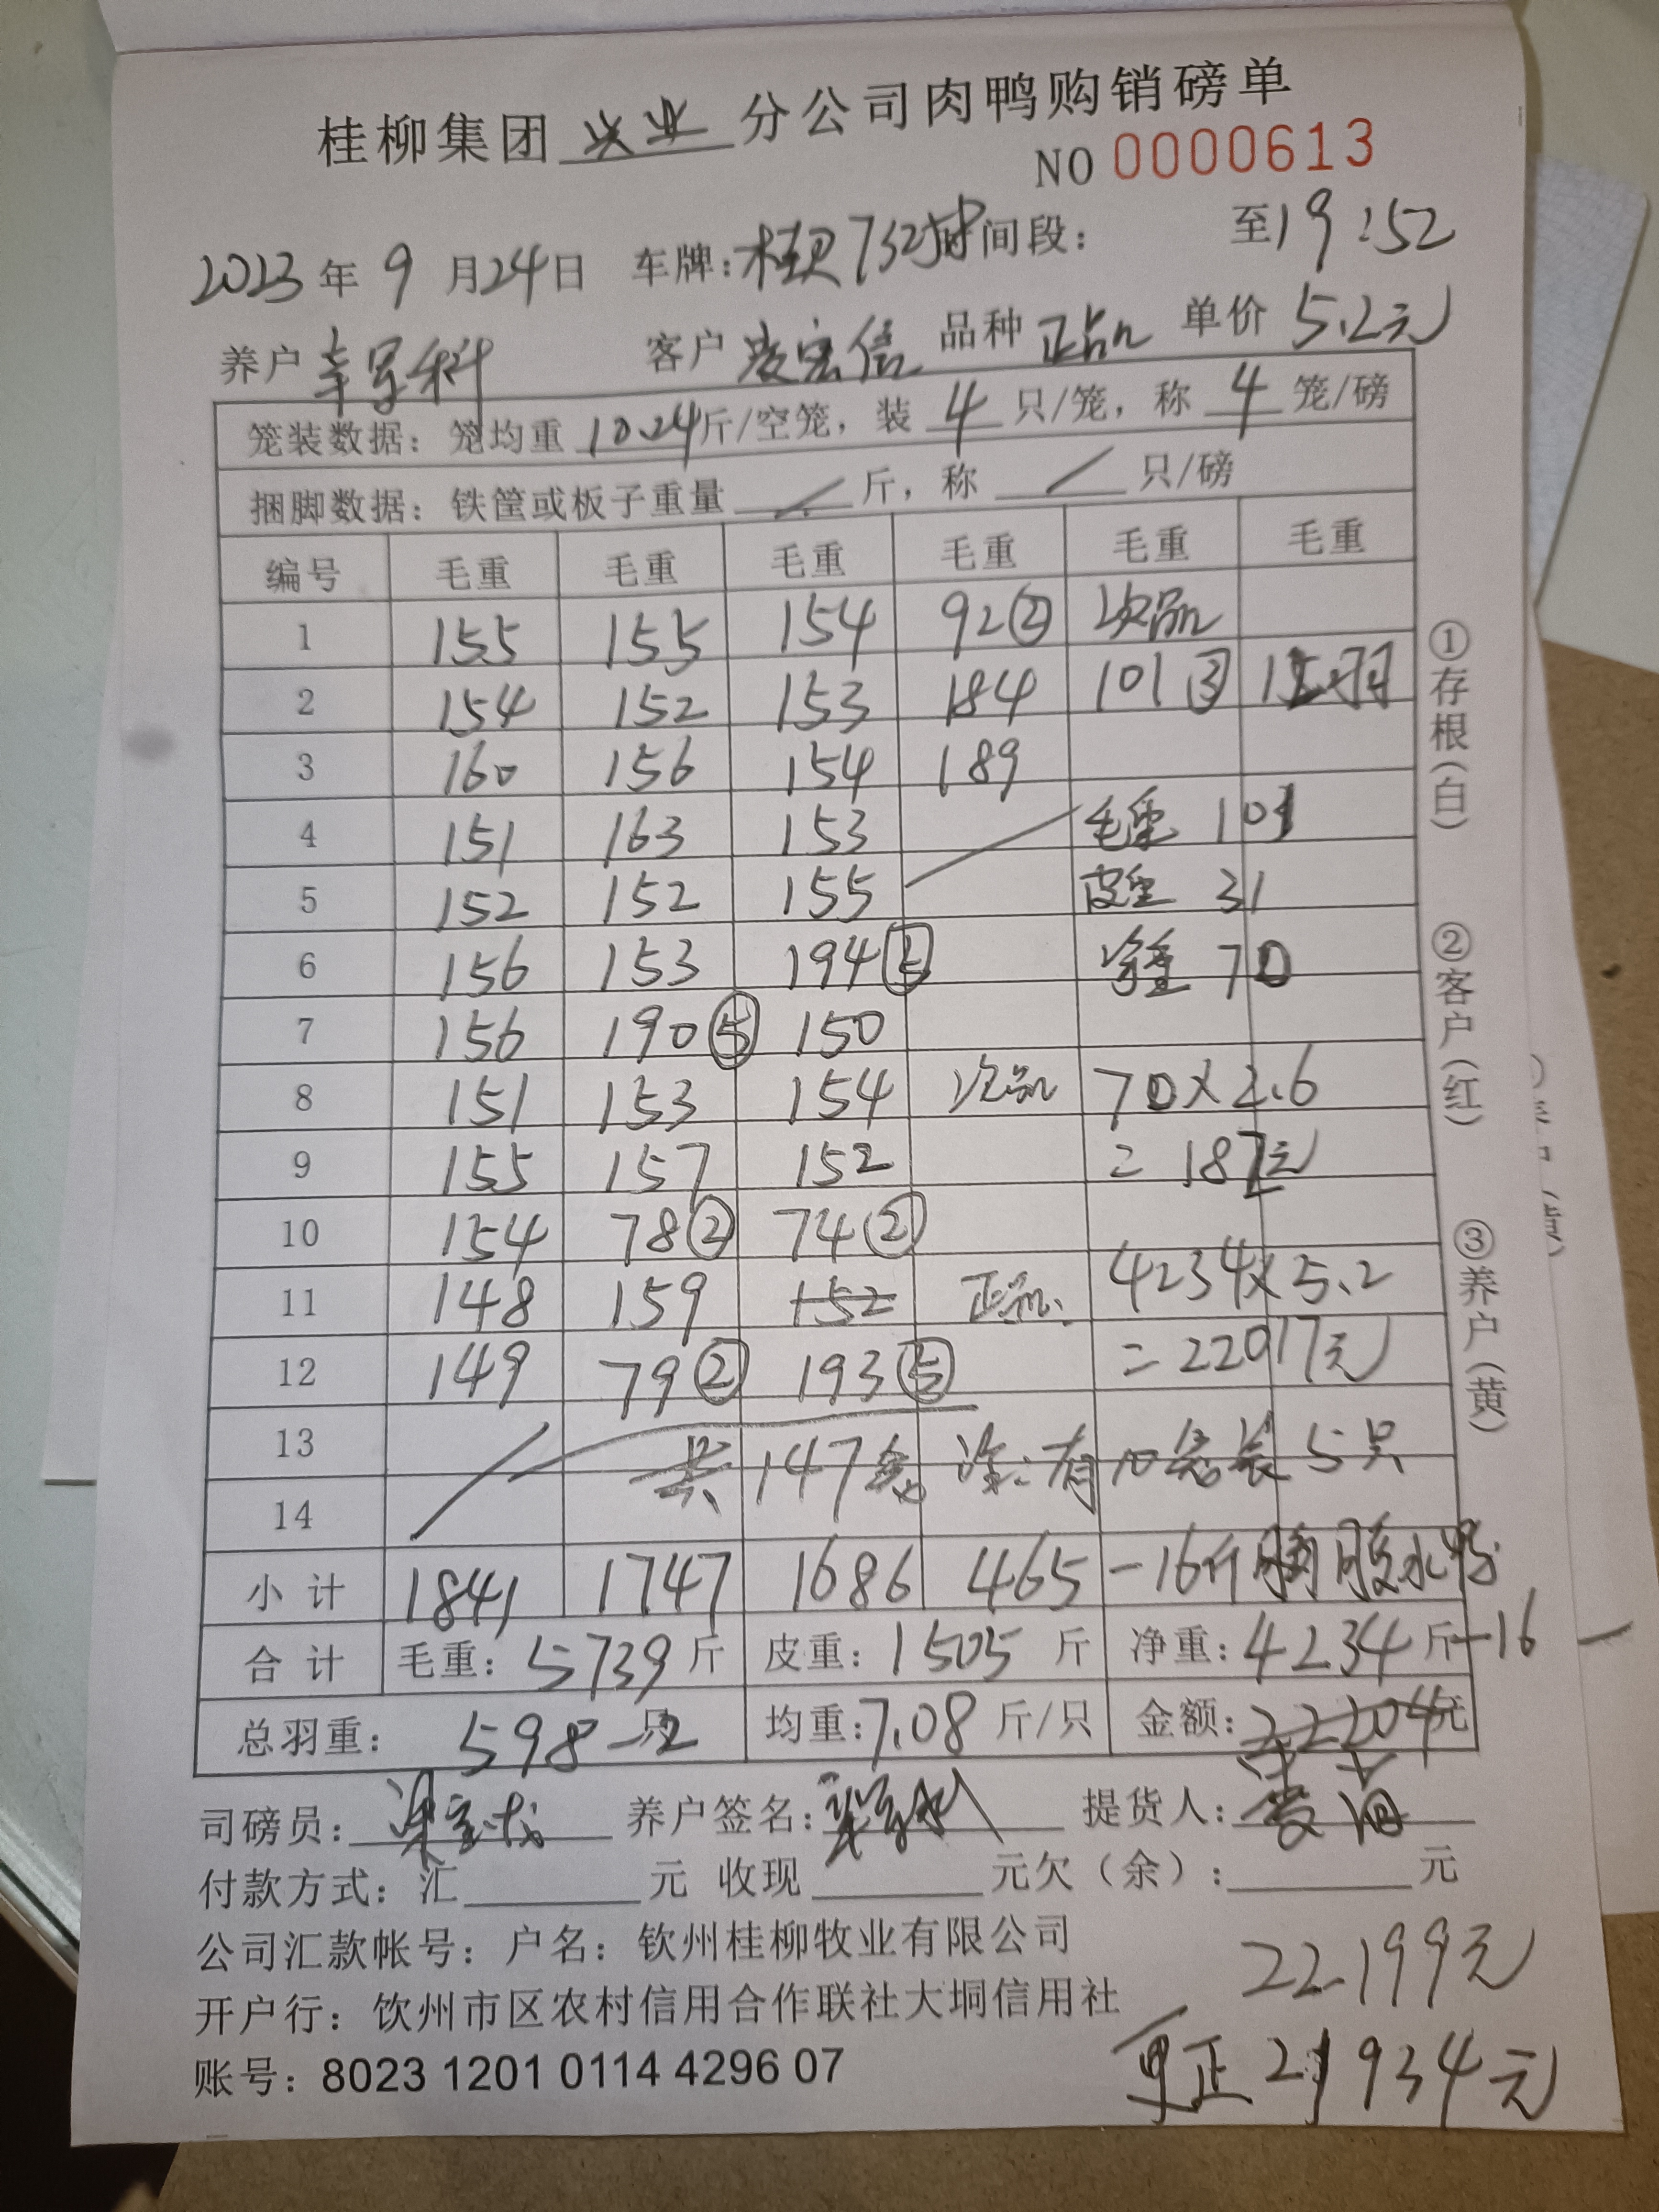 桂柳集团 兴业 分公司肉鸭购销磅单
NO 0000613
2023 年 9 月 24 日 车牌: 时间段: 至 19:52
养户 客户 凌宏信 品种 正品 单价 5.2元
笼装数据: 笼均重 10.24 斤/空笼, 装 4 只/笼, 称 4 笼/磅
捆脚数据: 铁筐或板子重量 / 斤, 称 / 只/磅
编号 毛重 毛重 毛重 毛重 毛重 毛重
1 155 155 154 92② 次品
2 154 152 153 184 101③ 羽
3 160 156 154 189
4 151 163 153 毛重 101
5 152 152 155 皮重 31
6 156 153 194⑤ 净重 70
7 156 190⑤ 150
8 151 153 154 次品 70×2.6
9 155 157 152 = 187元
10 154 78② 74②
11 148 159 152 正品 4234×5.2
12 149 79② 193⑤ =22017元
13 共147笼 注:有10笼装5只
14
小计 1841 1747 1686 465 -16斤 水鸭
合计 毛重: 5739 斤 皮重: 1505 斤 净重: 4234 斤-16
总羽重: 598-2 只 均重: 7.08 斤/只 金额: 22204元
司磅员: 养户签名: 提货人:
付款方式: 汇 元 收现 元欠(余): 元
公司汇款帐号: 户名: 钦州桂柳牧业有限公司
22199元
开户行: 钦州市区农村信用合作联社大垌信用社
账号: 8023 1201 0114 4296 07
更正 21934元
①存根(白)
②客户(红)
③养户(黄)